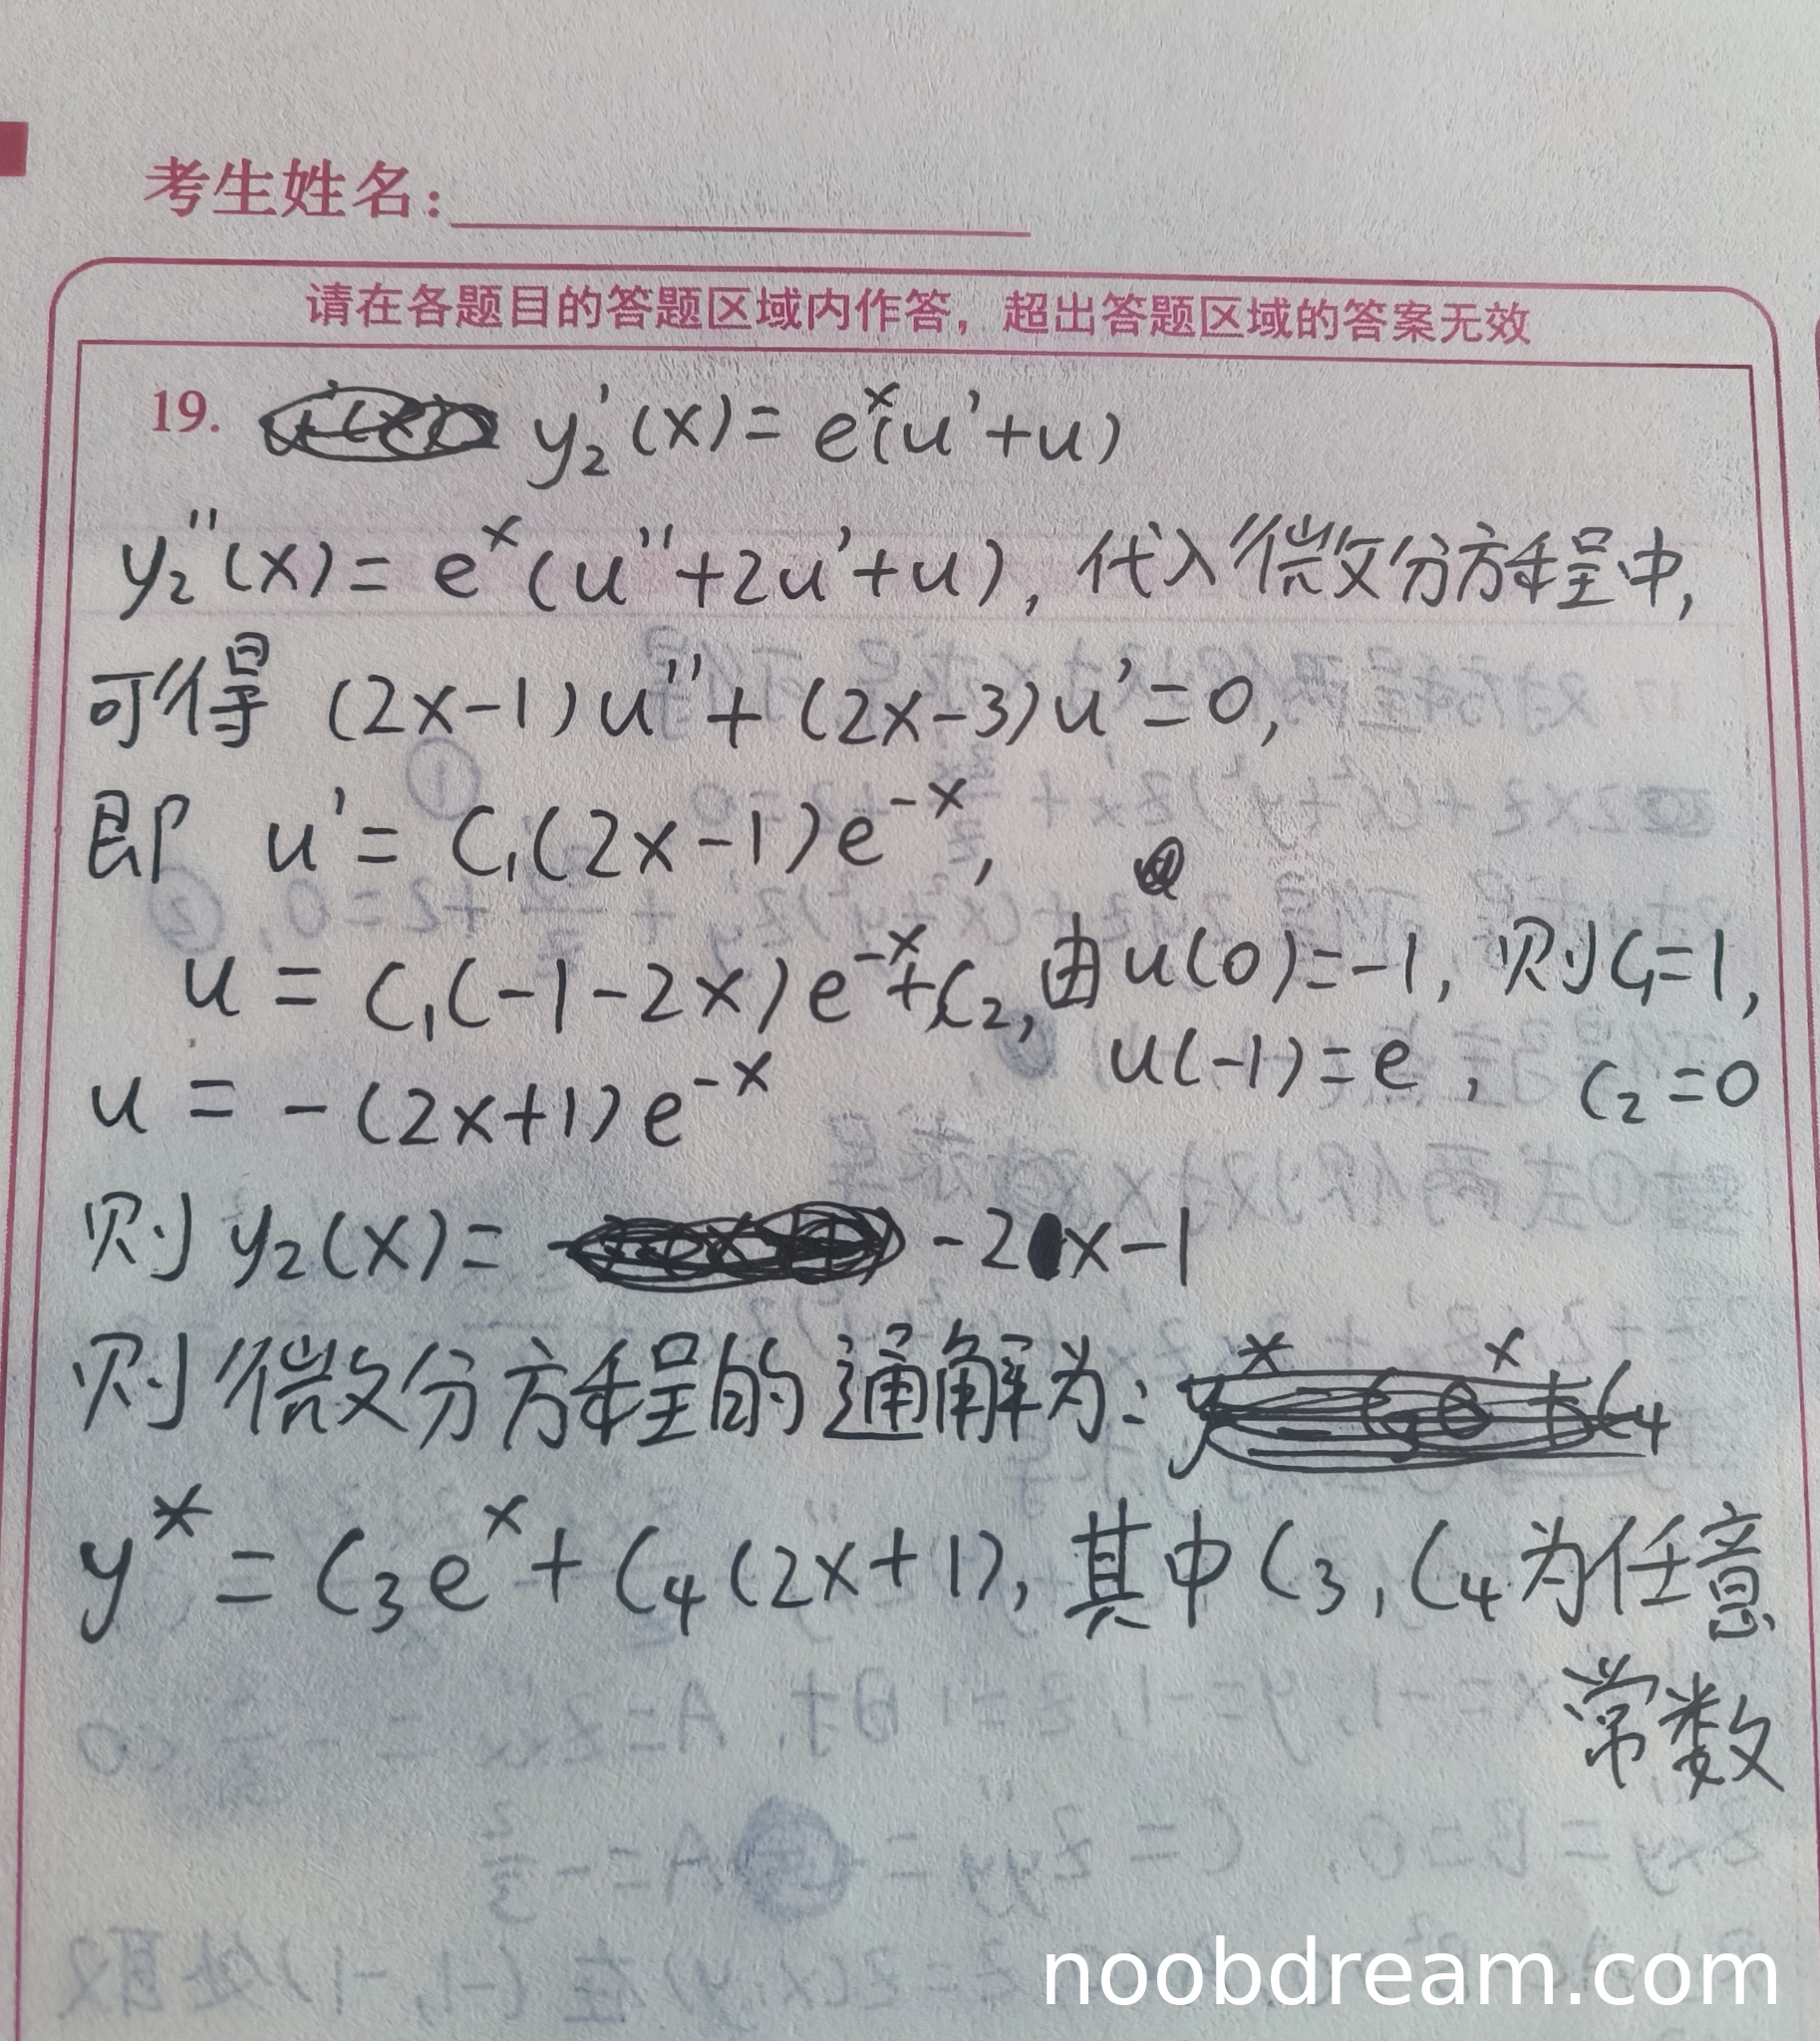 考生姓名:
请在各题目的答题区域内作答，超出答题区域的答案无效
19. y₂'(x) = eˣ(u'+u)
y₂''(x) = eˣ(u''+2u'+u), 代入微分方程中,
可得 (2x-1)u''+(2x-3)u'=0,
即 u' = C₁(2x-1)e⁻ˣ,
u = C₁(-1-2x)e⁻ˣ+C₂, 由u(0)=-1, 则C₁=1,
u(-1)=e, C₂=0
u = -(2x+1)e⁻ˣ
则 y₂(x) = -2x-1
则微分方程的通解为:
y* = C₃eˣ+C₄(2x+1), 其中C₃, C₄为任意
常数
noobdream.com